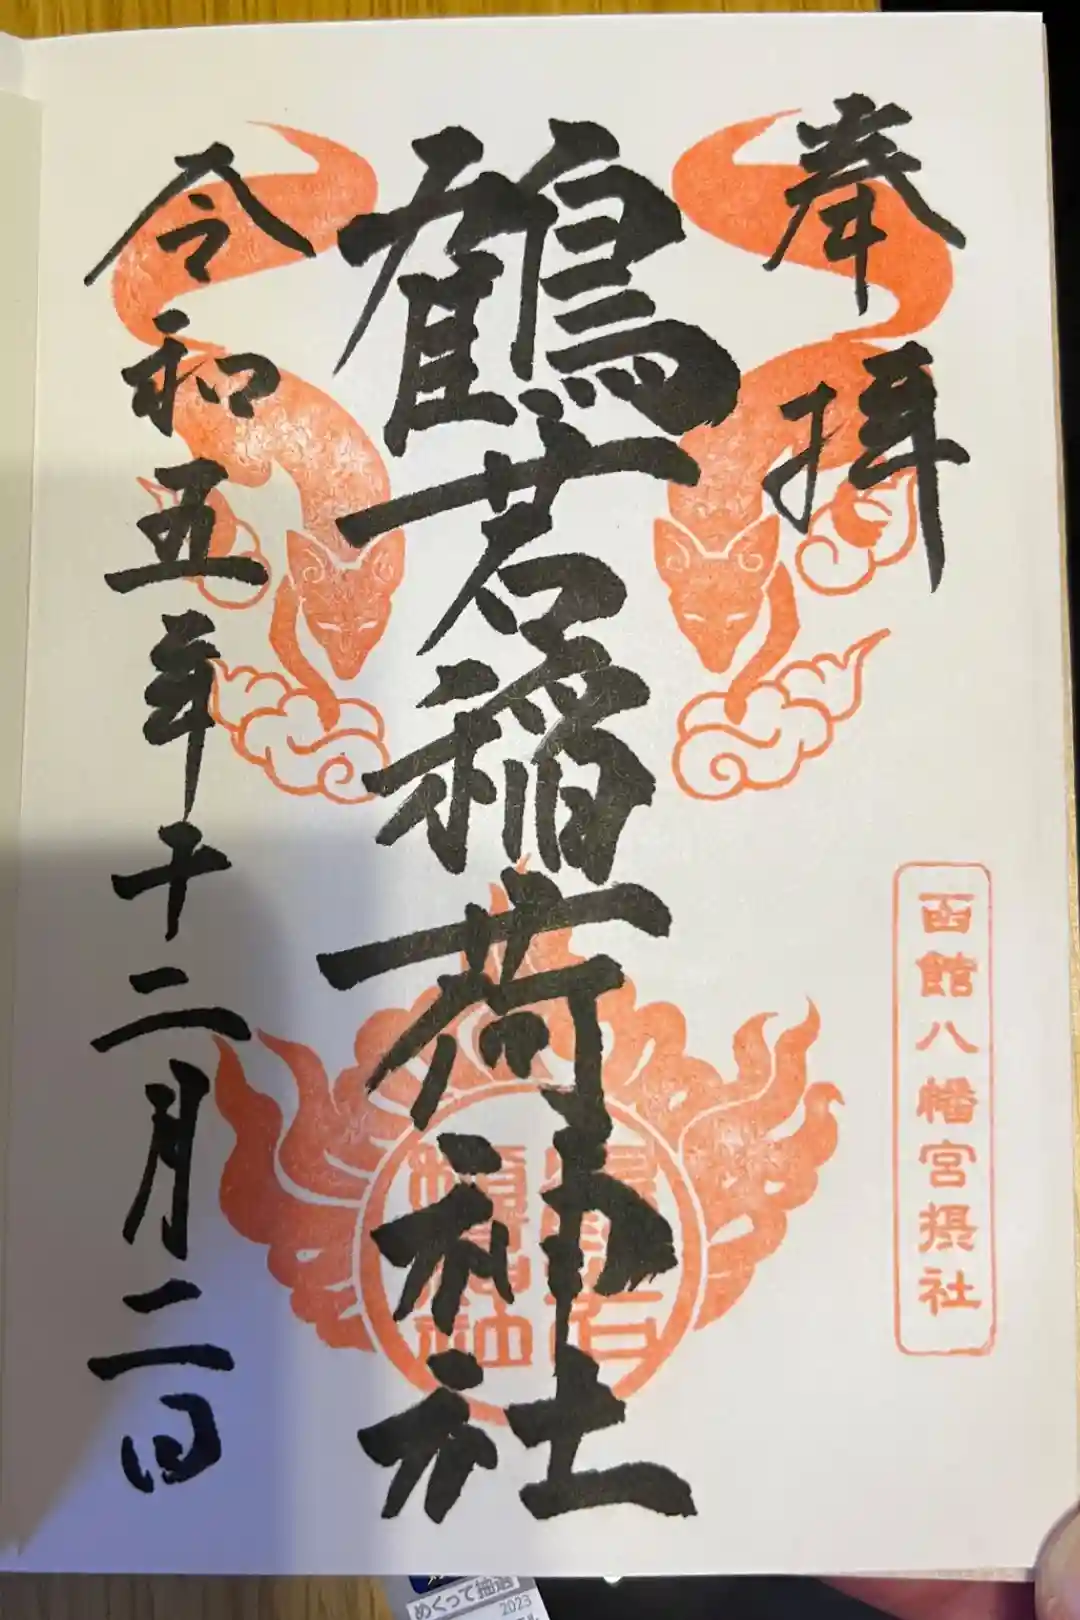 奉拝
函館八幡宮摂社
鶴若稲荷神社
令和五年十二月二日
めくって抽選
2023